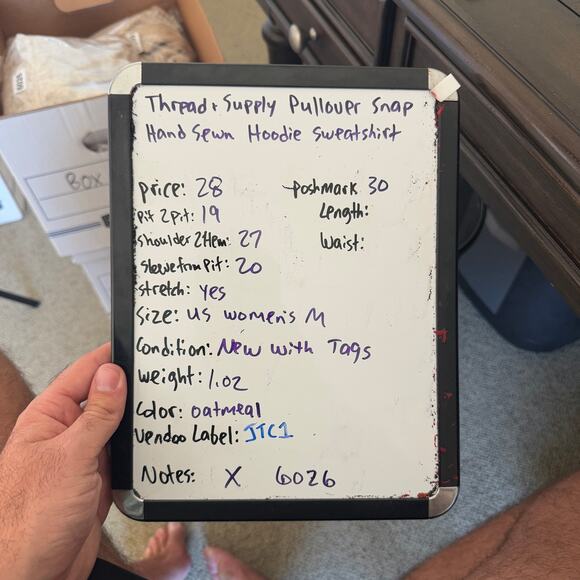 Thread + Supply Pullover Snap
Hand Sewn Hoodie Sweatshirt
price: 28
poshmark 30
Pit 2 Pit: 19
Length:
Shoulder 2 Hem: 27
Waist:
Sleeve from Pit: 20
Stretch: yes
Size: US women's M
Condition: New with Tags
weight: 1.02
Color: oatmeal
Vendoo Label: JTC1
Notes: X 6026
BOX
6026